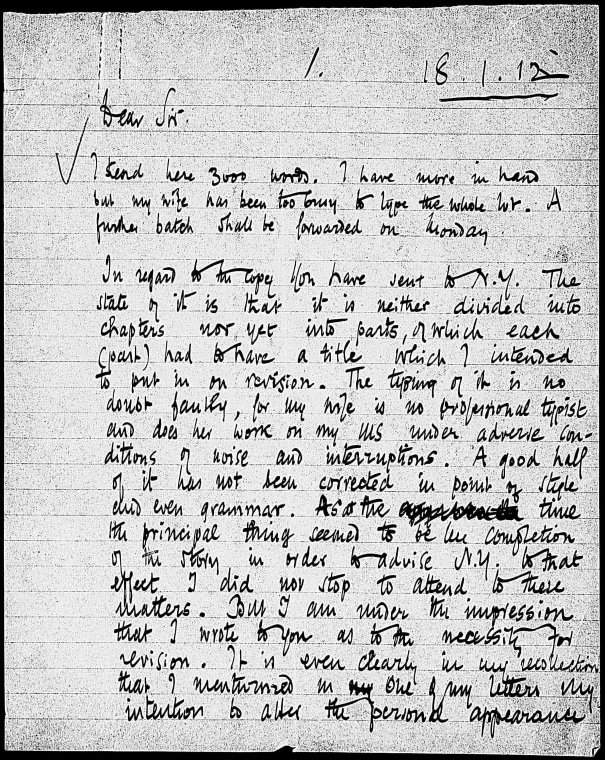 1.
18.1.12
Dear Sir.
I send here 3000 words. I have more in hand
but my wife has been too busy to type the whole lot. A
further batch shall be forwarded on Monday
In regard to the copy You have sent to N.Y. The
state of it is that it is neither divided into
chapters nor yet into parts, of which each
(part) had to have a title which I intended
to put in on revision. The typing of it is no
doubt faulty, for my wife is no professional typist
and does her work on my MS under adverse con-
ditions of noise and interruptions. A good half
of it has not been corrected in point of style
and even grammar. As at the time
the principal thing seemed to be the completion
of the story in order to advise N.Y. to that
effect I did not stop to attend to these
matters. But I am under the impression
that I wrote to you as to the necessity for
revision. It is even clearly in my recollection
that I mentioned in my one of my letters my
intention to alter the personal appearance